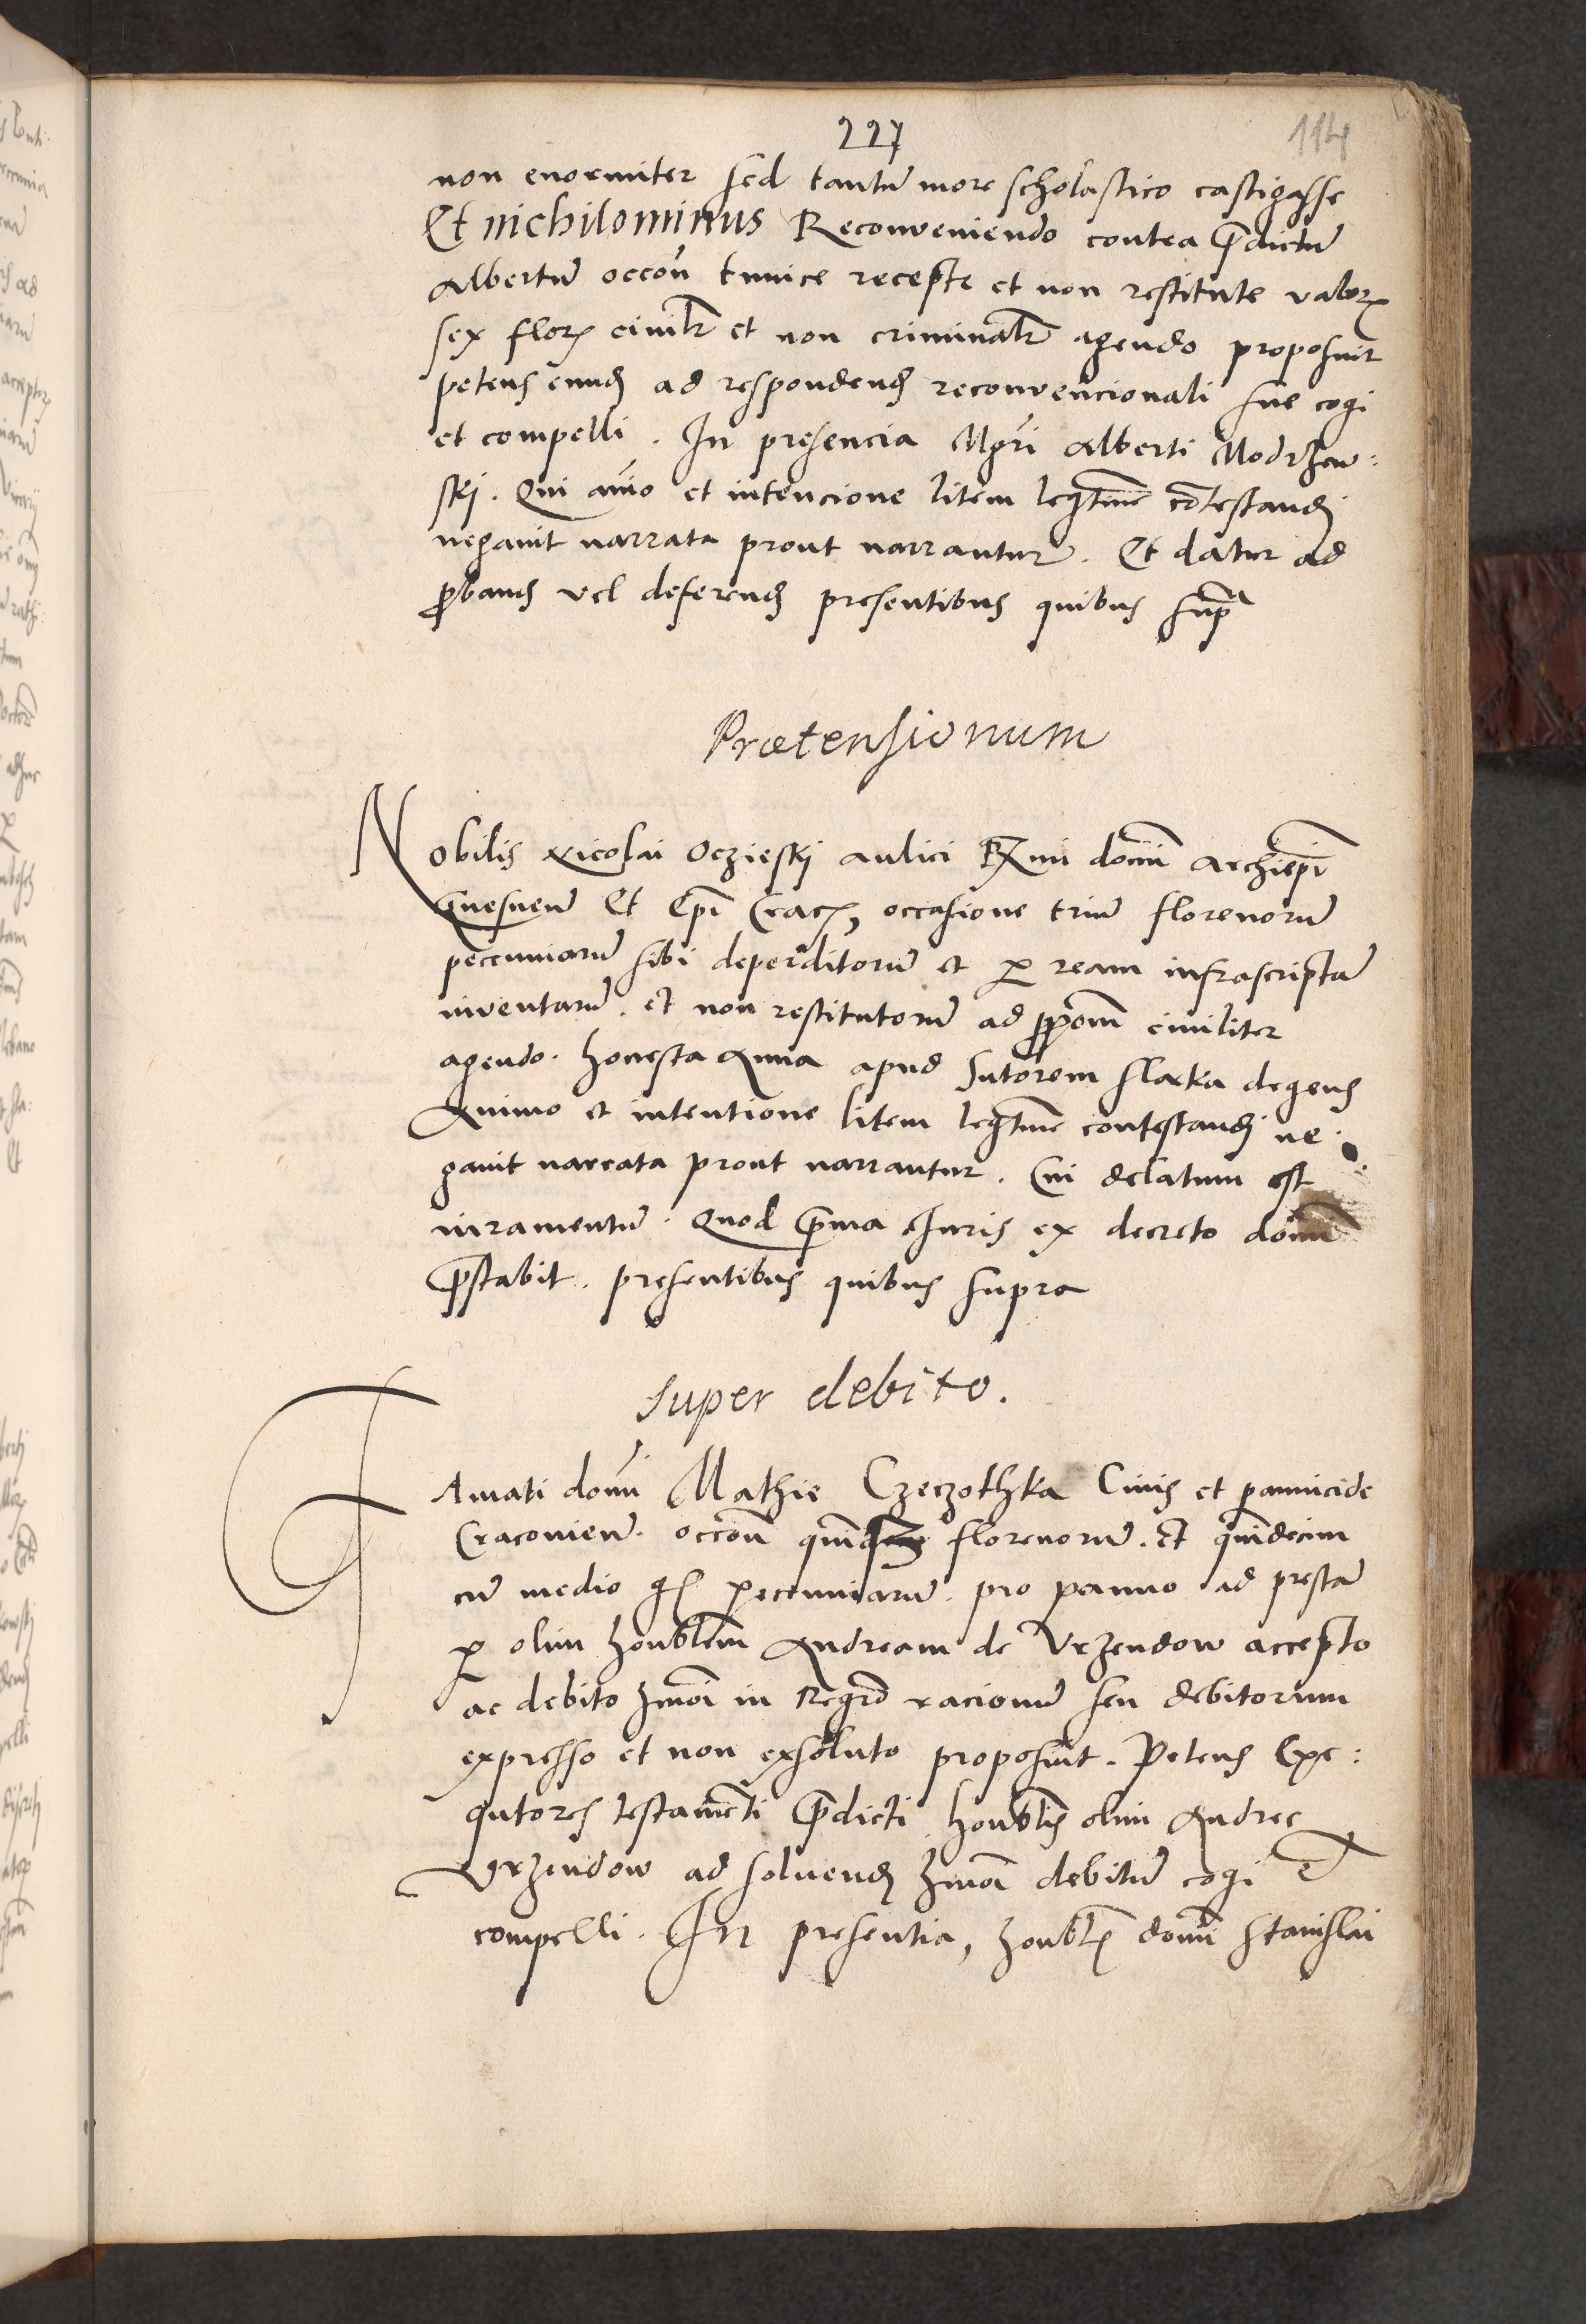 227
114
non enormiter sed tantū more scholastico castigasse
Et nichilominus Reconveniendo contra p̄dictū
Albertū occōn tunice recepte et non restitute valor
sex flor civilr̄ et non criminalr̄ agendo proposuit
petens eund ad respondend reconvencionali sue cogi
et compelli. In presencia Mgri Alberti Modrzew:
skj. Qui aīo et intencione litem legittme cōtestandj
negavit narrata prout narrantur. Et datur ad
p̄band vel deferend presentibus quibus sup̄
Prætensionum
Nobilis Nicolai Oczieskj aulici Rmi domī archiepī
Gnesnen̄ Et Epī Crac, occasione triū florenorū
peccuniarū sibi deperditorū et p ream infrascriptā
inventarū. et non restitutorū ad p̄pom̄ civiliter
agendo. honesta Anna apud sutorem slaka degens
Animo et intentione litem legittme contestandj ne:
gavit narrata prout narrantur. Cui delatum est
iuramentū. Quod p̄ma Juris ex decreto domī
p̄stabit. presentibus quibus supra
super debito.
Famati domī Mathie Czeczothka Civis et pannicide
Craconien̄. occōn quīq florenorū. Et quīdecim
cū medio gs peccuniarū. pro panno ad prestā
p olim honblem Andream de Vrzendow accepto
ac debito hmōi in Regrō racionū seu debitorum
expresso et non exsoluto proposuit. Petens Exe:
qutores testamēti p̄dicti honblis olim Andree
Vrzendow ad solvend hmōi debitū cogi et
compelli. In presentia, honbl domī Stanislai